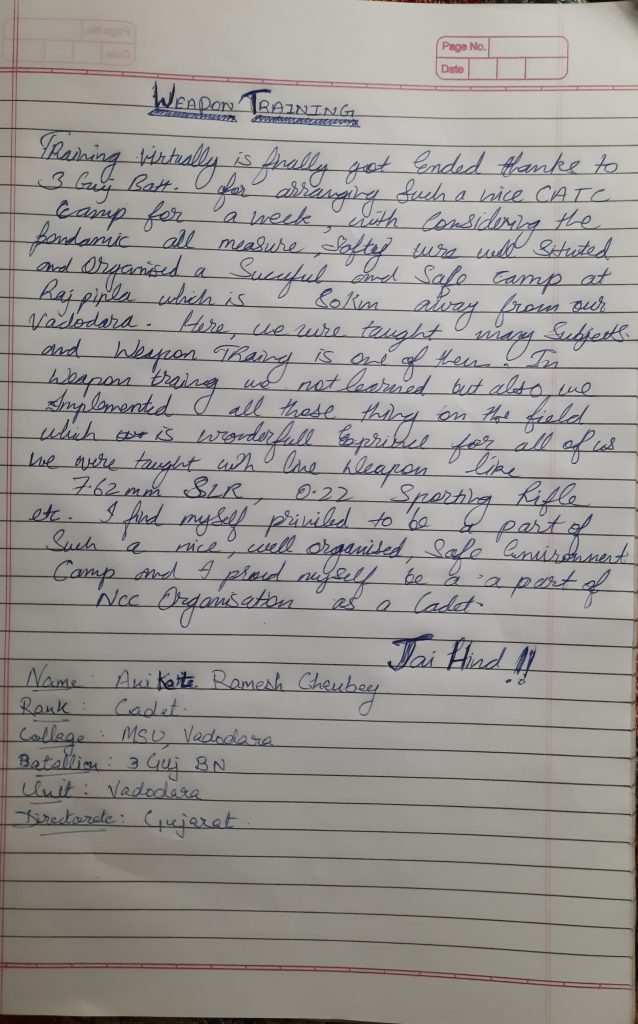 Page No.
Date
WEAPON TRAINING
Training virtually is finally got Ended thanks to
3 Guj Batt. for arranging Such a nice CATC
Camp for a week, with Considering the
pandamic all measure, Saftey were well Situted
and Organised a Succyful and Safe Camp at
Rajpipla which is 80Km alway from our
Vadodara. Here, we wure taught many Subjects.
and Weapon TRaing is one of them. In
Weapon traing we not learned but also we
Implemented all those thing on the field
which is wonderfull Exprince for all of us
we were taught with live Weapon like
7.62 mm SLR, 0.22 Sporting Rifle
etc. I find myself priviled to be a part of
Such a nice, well organised, Safe Environment
Camp and I proud myself be a a part of
Ncc Organisation as a Cadet.
Jai Hind !!
Name : Aniket Ramesh Chaubey
Rank : Cadet.
College : MSU, Vadodara
Batallion : 3 Guj BN
Unit : Vadodara
Directorate : Gujarat